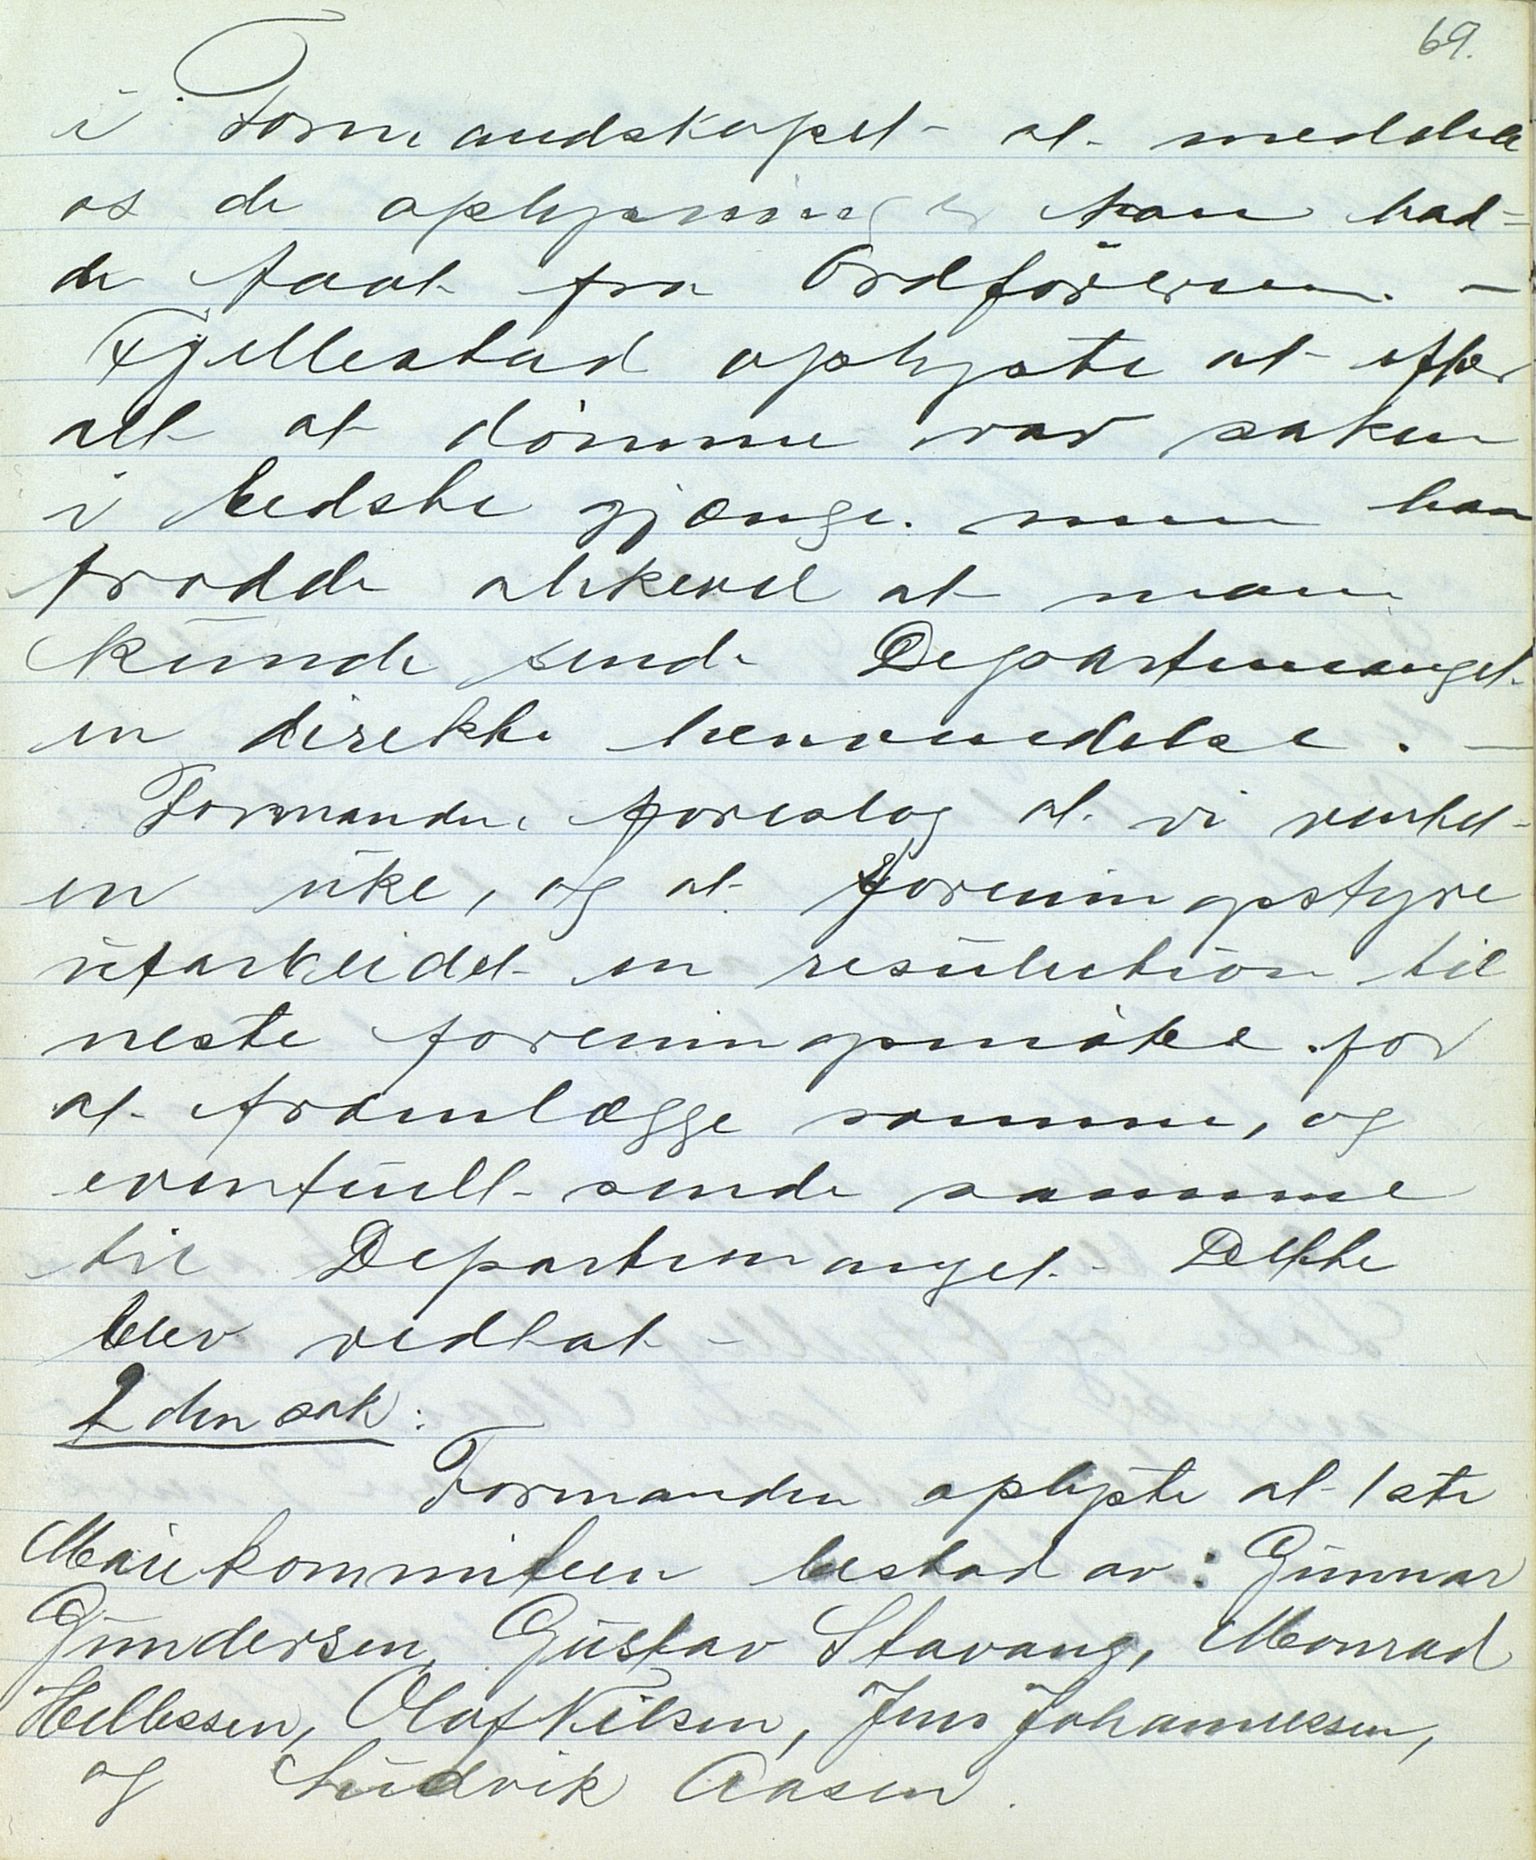 69.
i Formandskapet at meddele
os de oplysninger han had=
de faat fra Ordföreren. –
Fjellestad oplyste at efter
alt at dömme var saken
i bedste gjænge. men han
trodde alikevel at man
kunde sende Departemanget
en direkte henvendelse. –
Formanden foreslog at vi ventet
en uke, og at foreningsstyre
utarbeidet en resulution til
neste foreningsmöte for
at framlægge samme, og
eventuelt sende samme
til Departemanget. Dette
blev vedtat –
2 den sak:
Formanden oplyste at 1ste
Maiekommiteen bestod av: Gunnar
Gundersen, Gustav Stavang, Monrad
Hellessen, Olaf Nilsen, Jens Johannessen,
og Ludvik Aasen.